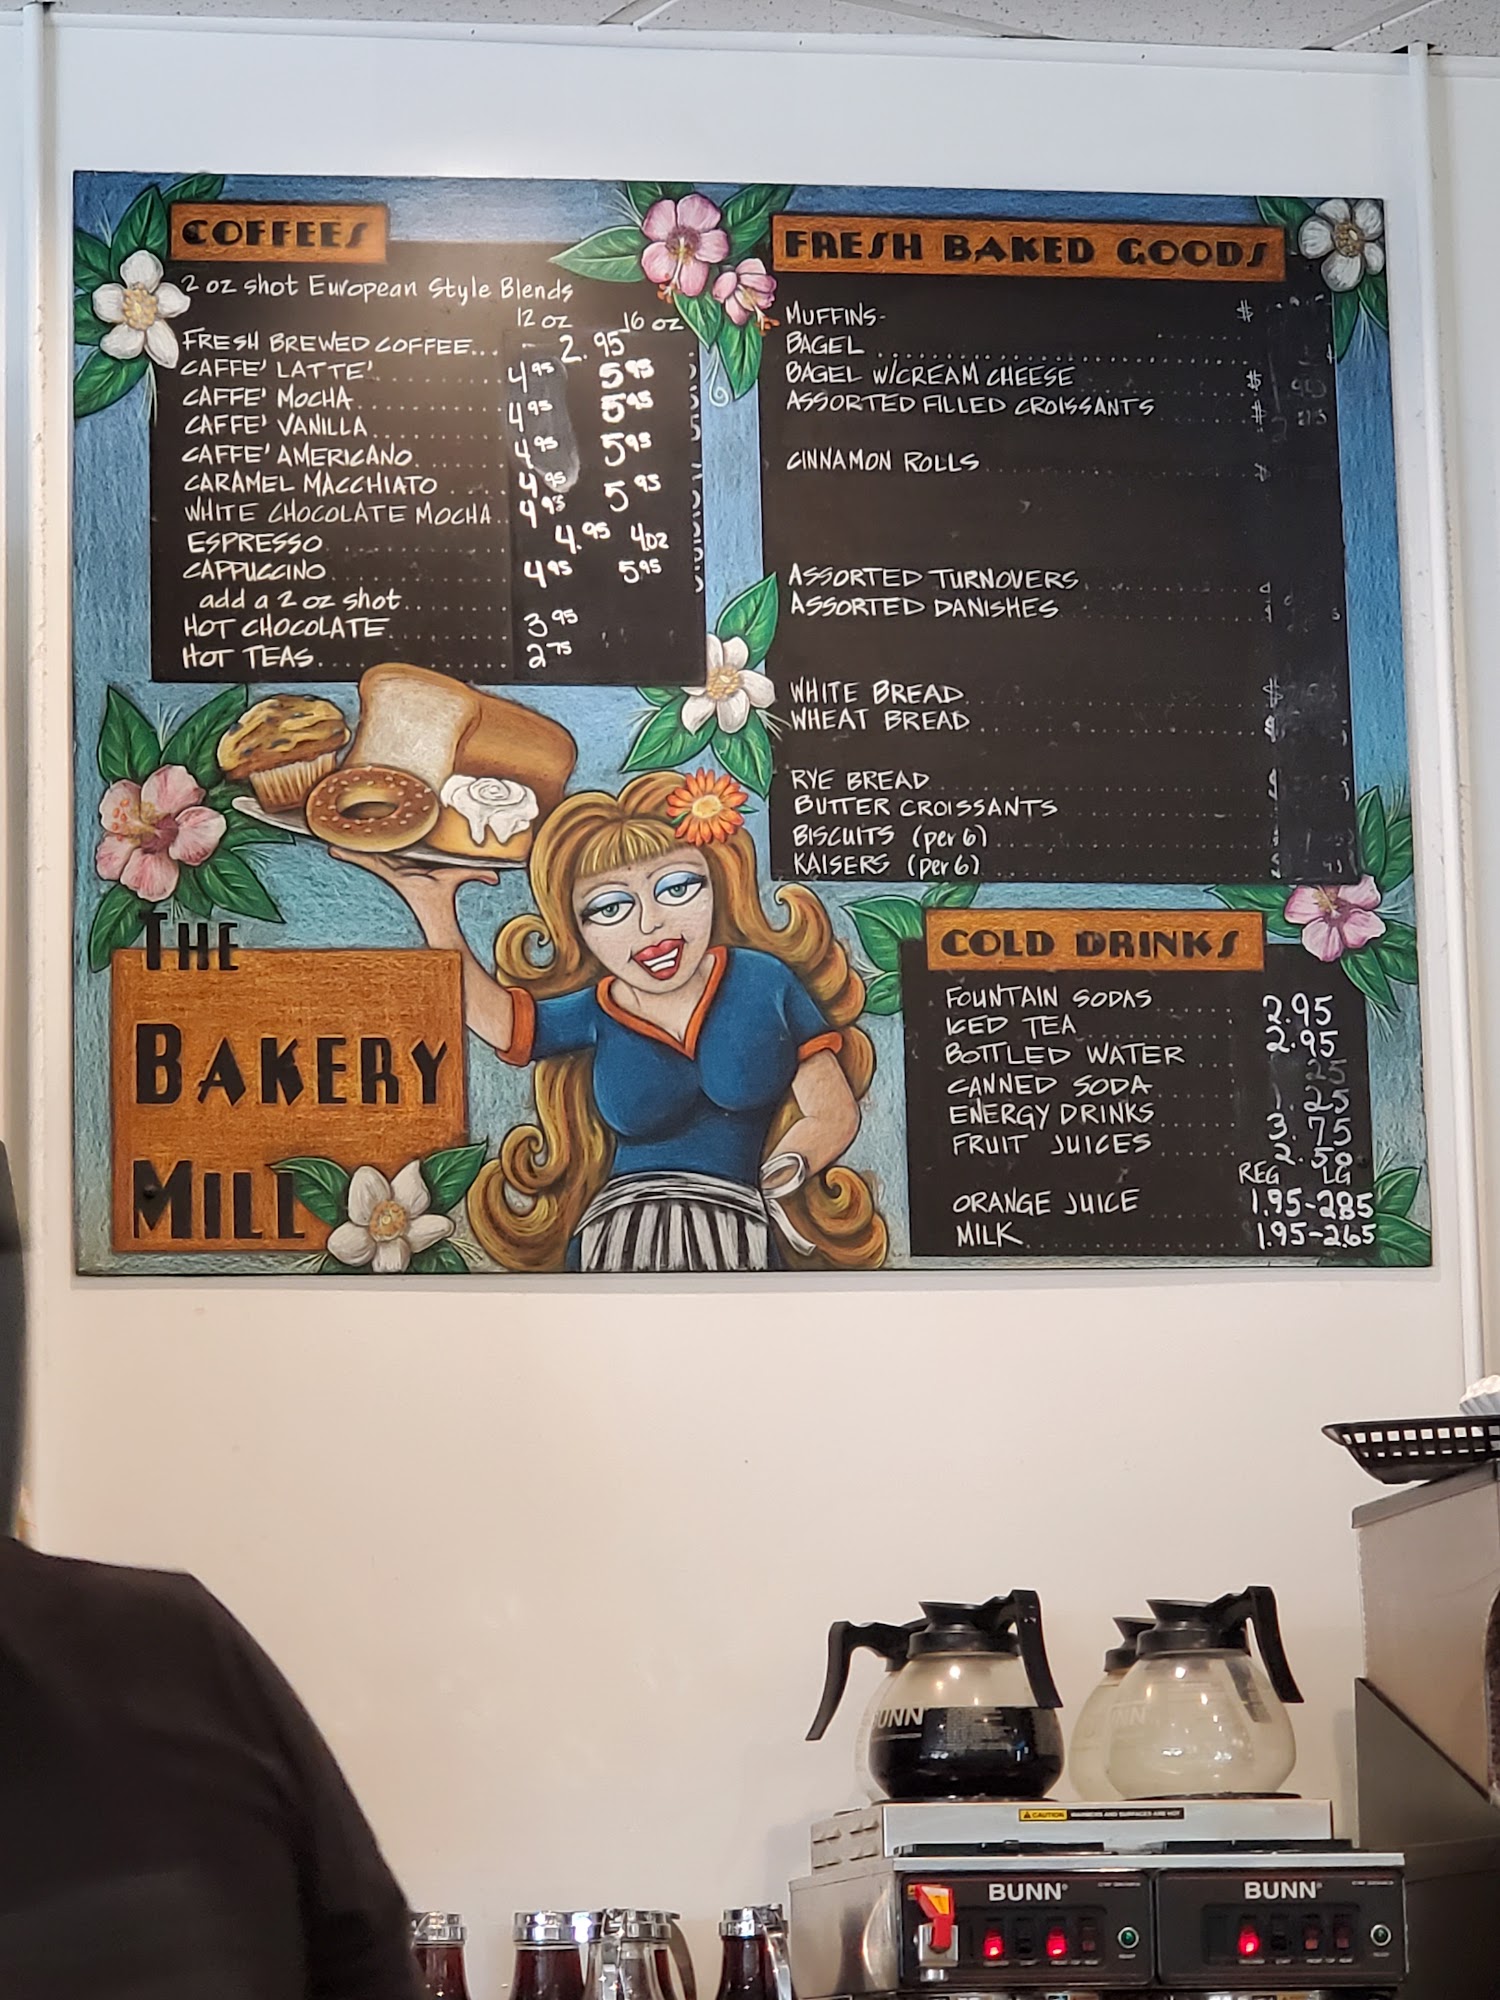 COFFEES
2 oz shot European Style Blends
12 oz 16 oz
FRESH BREWED COFFEE... 2.95
CAFFE' LATTE' 4.95 5.95
CAFFE' MOCHA 4.95 5.95
CAFFE' VANILLA 4.95 5.95
CAFFE' AMERICANO 4.95 5.95
CARAMEL MACCHIATO
WHITE CHOCOLATE MOCHA.. 4.95
ESPRESSO 4.95 4oz
CAPPUCCINO 4.95 5.95
add a 2 oz shot
HOT CHOCOLATE 3.95
HOT TEAS 2.75
FRESH BAKED GOODS
MUFFINS- $
BAGEL
BAGEL W/CREAM CHEESE $
ASSORTED FILLED CROISSANTS $
CINNAMON ROLLS
ASSORTED TURNOVERS
ASSORTED DANISHES
WHITE BREAD $
WHEAT BREAD
RYE BREAD
BUTTER CROISSANTS
BISCUITS (per 6)
KAISERS (per 6)
COLD DRINKS
FOUNTAIN SODAS 2.95
ICED TEA 2.95
BOTTLED WATER
CANNED SODA 1.25
ENERGY DRINKS 3.75
FRUIT JUICES 2.50
REG LG
ORANGE JUICE 1.95-2.85
MILK 1.95-2.65
THE
BAKERY
MILL
BUNN
CAUTION
BUNN
BUNN